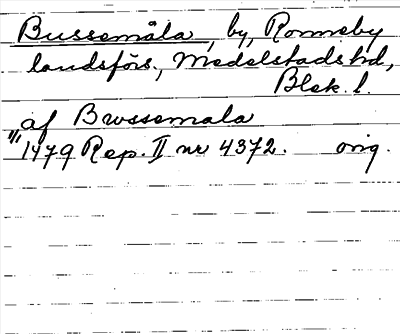 Bussemåla, by, Ronneby
landsförs., Medelstads hd,
Blek. l.
af Bwssemala
1/11 1479 Rep. II nr 4372. orig.